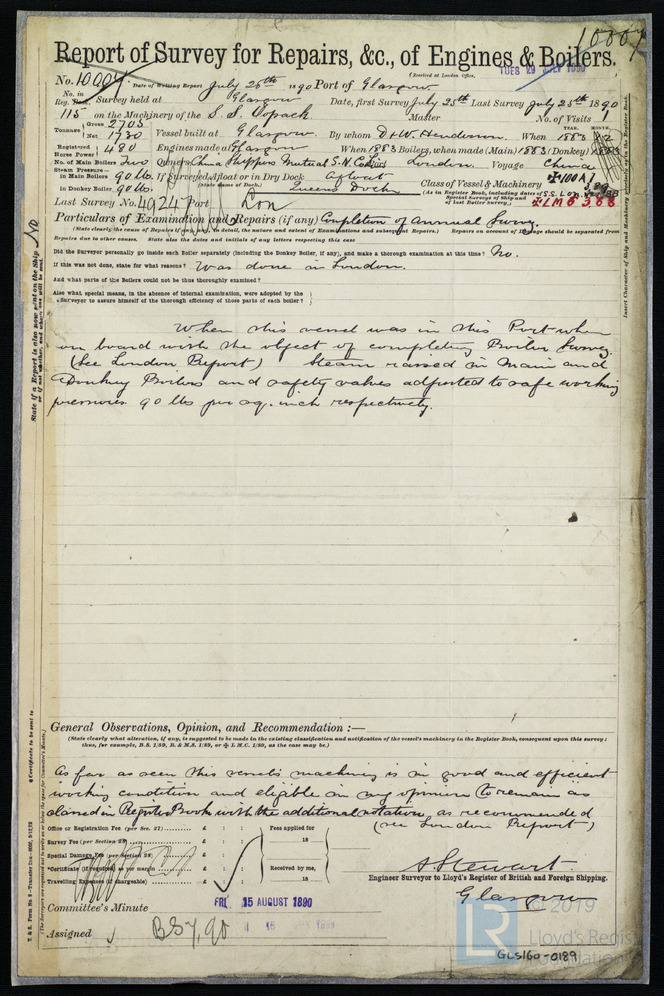 10007
Report of Survey for Repairs, &c., of Engines & Boilers.
(Received at London Office, TUES 29 JULY 1890
No. 10007 Date of Writing Report July 26th 1890 Port of Glasgow
No. in Reg. Book. Survey held at Glasgow Date, first Survey July 25th Last Survey July 25th 1890
115 on the Machinery of the S. S. Oopack Master No. of Visits 1
Tonnage Gross 2705
Net 1730 Vessel built at Glasgow By whom D & W. Henderson When YEAR. 1883 MONTH.
Registered Horse Power 480 Engines made at Glasgow When 1883 Boilers, when made (Main) 1883 (Donkey) 1883
No. of Main Boilers Two Owners China Shippers Mutual S. N. Co Ld Port London Voyage China
Steam Pressure— in Main Boilers 90 lbs. If Surveyed Afloat or in Dry Dock Afloat Class of Vessel & Machinery ✠100A1
in Donkey Boiler 90 lbs. (State name of Dock.) Queens Dock (As in Register Book, including dates of Special Surveys of Ship and of last Boiler survey.)
Last Survey No. 4924 Port Lon ✠LMC 3,88
Particulars of Examination and Repairs (if any) Completion of Annual Survey.
(State clearly the cause of Repairs if any, and in detail, the nature and extent of Examinations and subsequent Repairs.) Repairs on account of Damage should be separated from
Repairs due to other causes. State also the dates and initials of any letters respecting this case
Did the Surveyor personally go inside each Boiler separately (including the Donkey Boiler, if any), and make a thorough examination at this time? No.
If this was not done, state for what reasons? Was done in London.
And what parts of the Boilers could not be thus thoroughly examined?
Also what special means, in the absence of internal Examination, were adopted by the
Surveyor to assure himself of the thorough efficiency of those parts of each boiler?
When this vessel was in this Port when
on board with the object of completing Boiler Survey.
(See London Report) Steam raised in Main and
Donkey Boilers and safety valves adjusted to safe working
pressures 90 lbs per sq. inch respectively.
General Observations, Opinion, and Recommendation :—
(State clearly what alteration, if any, is suggested to be made in the existing classification and notification of the vessel's machinery in the Register Book, consequent upon this survey:
thus, for example, B.S. 1/89, B. & M.S. 1/89, or ✠ L.M.C. 1/89, as the case may be.)
As far as seen this vessel's machinery is in good and efficient
working condition and eligible in my opinion to remain as
classed in Register Book with the additional notation as recommended
(see London Report)
Office or Registration Fee (per Sec. 27) £ : : Fees applied for
Survey Fee (per Section 28) £ : : 18
Special Damage Fee (per Section 28) £ : :
*Certificate (if required) as per margin £ : : Received by me,
Travelling Expenses (if chargeable) £ : : 18
A Stewart
Engineer Surveyor to Lloyd's Register of British and Foreign Shipping.
Glasgow
Committee's Minute FRI. 15 AUGUST 1890
Assigned BS 7,90
State if a Report is also now sent on the Ship No
Insert Character of Ship and Machinery precisely as in the Register Book.
*Certificate to be sent to
© 2019
LR
Lloyd's Regist
Foundation
GLS160-0189